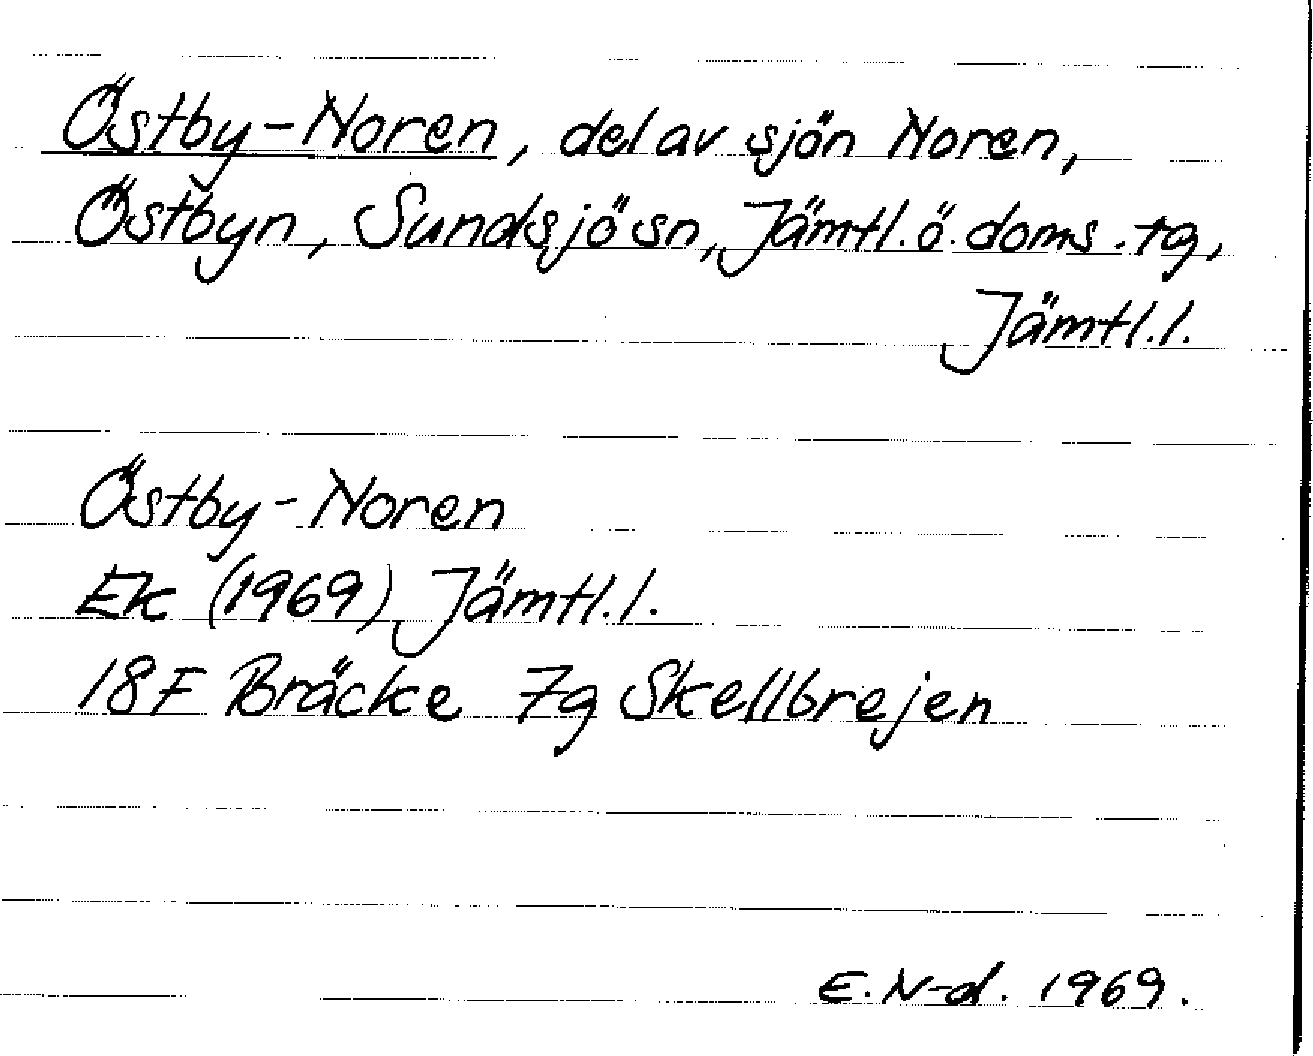 Östby-Noren, del av sjön Noren,
Östbyn, Sundsjö sn, Jämtl. ö. doms. tg,
Jämtl. l.
Östby-Noren
Ek (1969) Jämtl. l.
18F Bräcke 7g Skellbrejen
E. N-d. 1969.